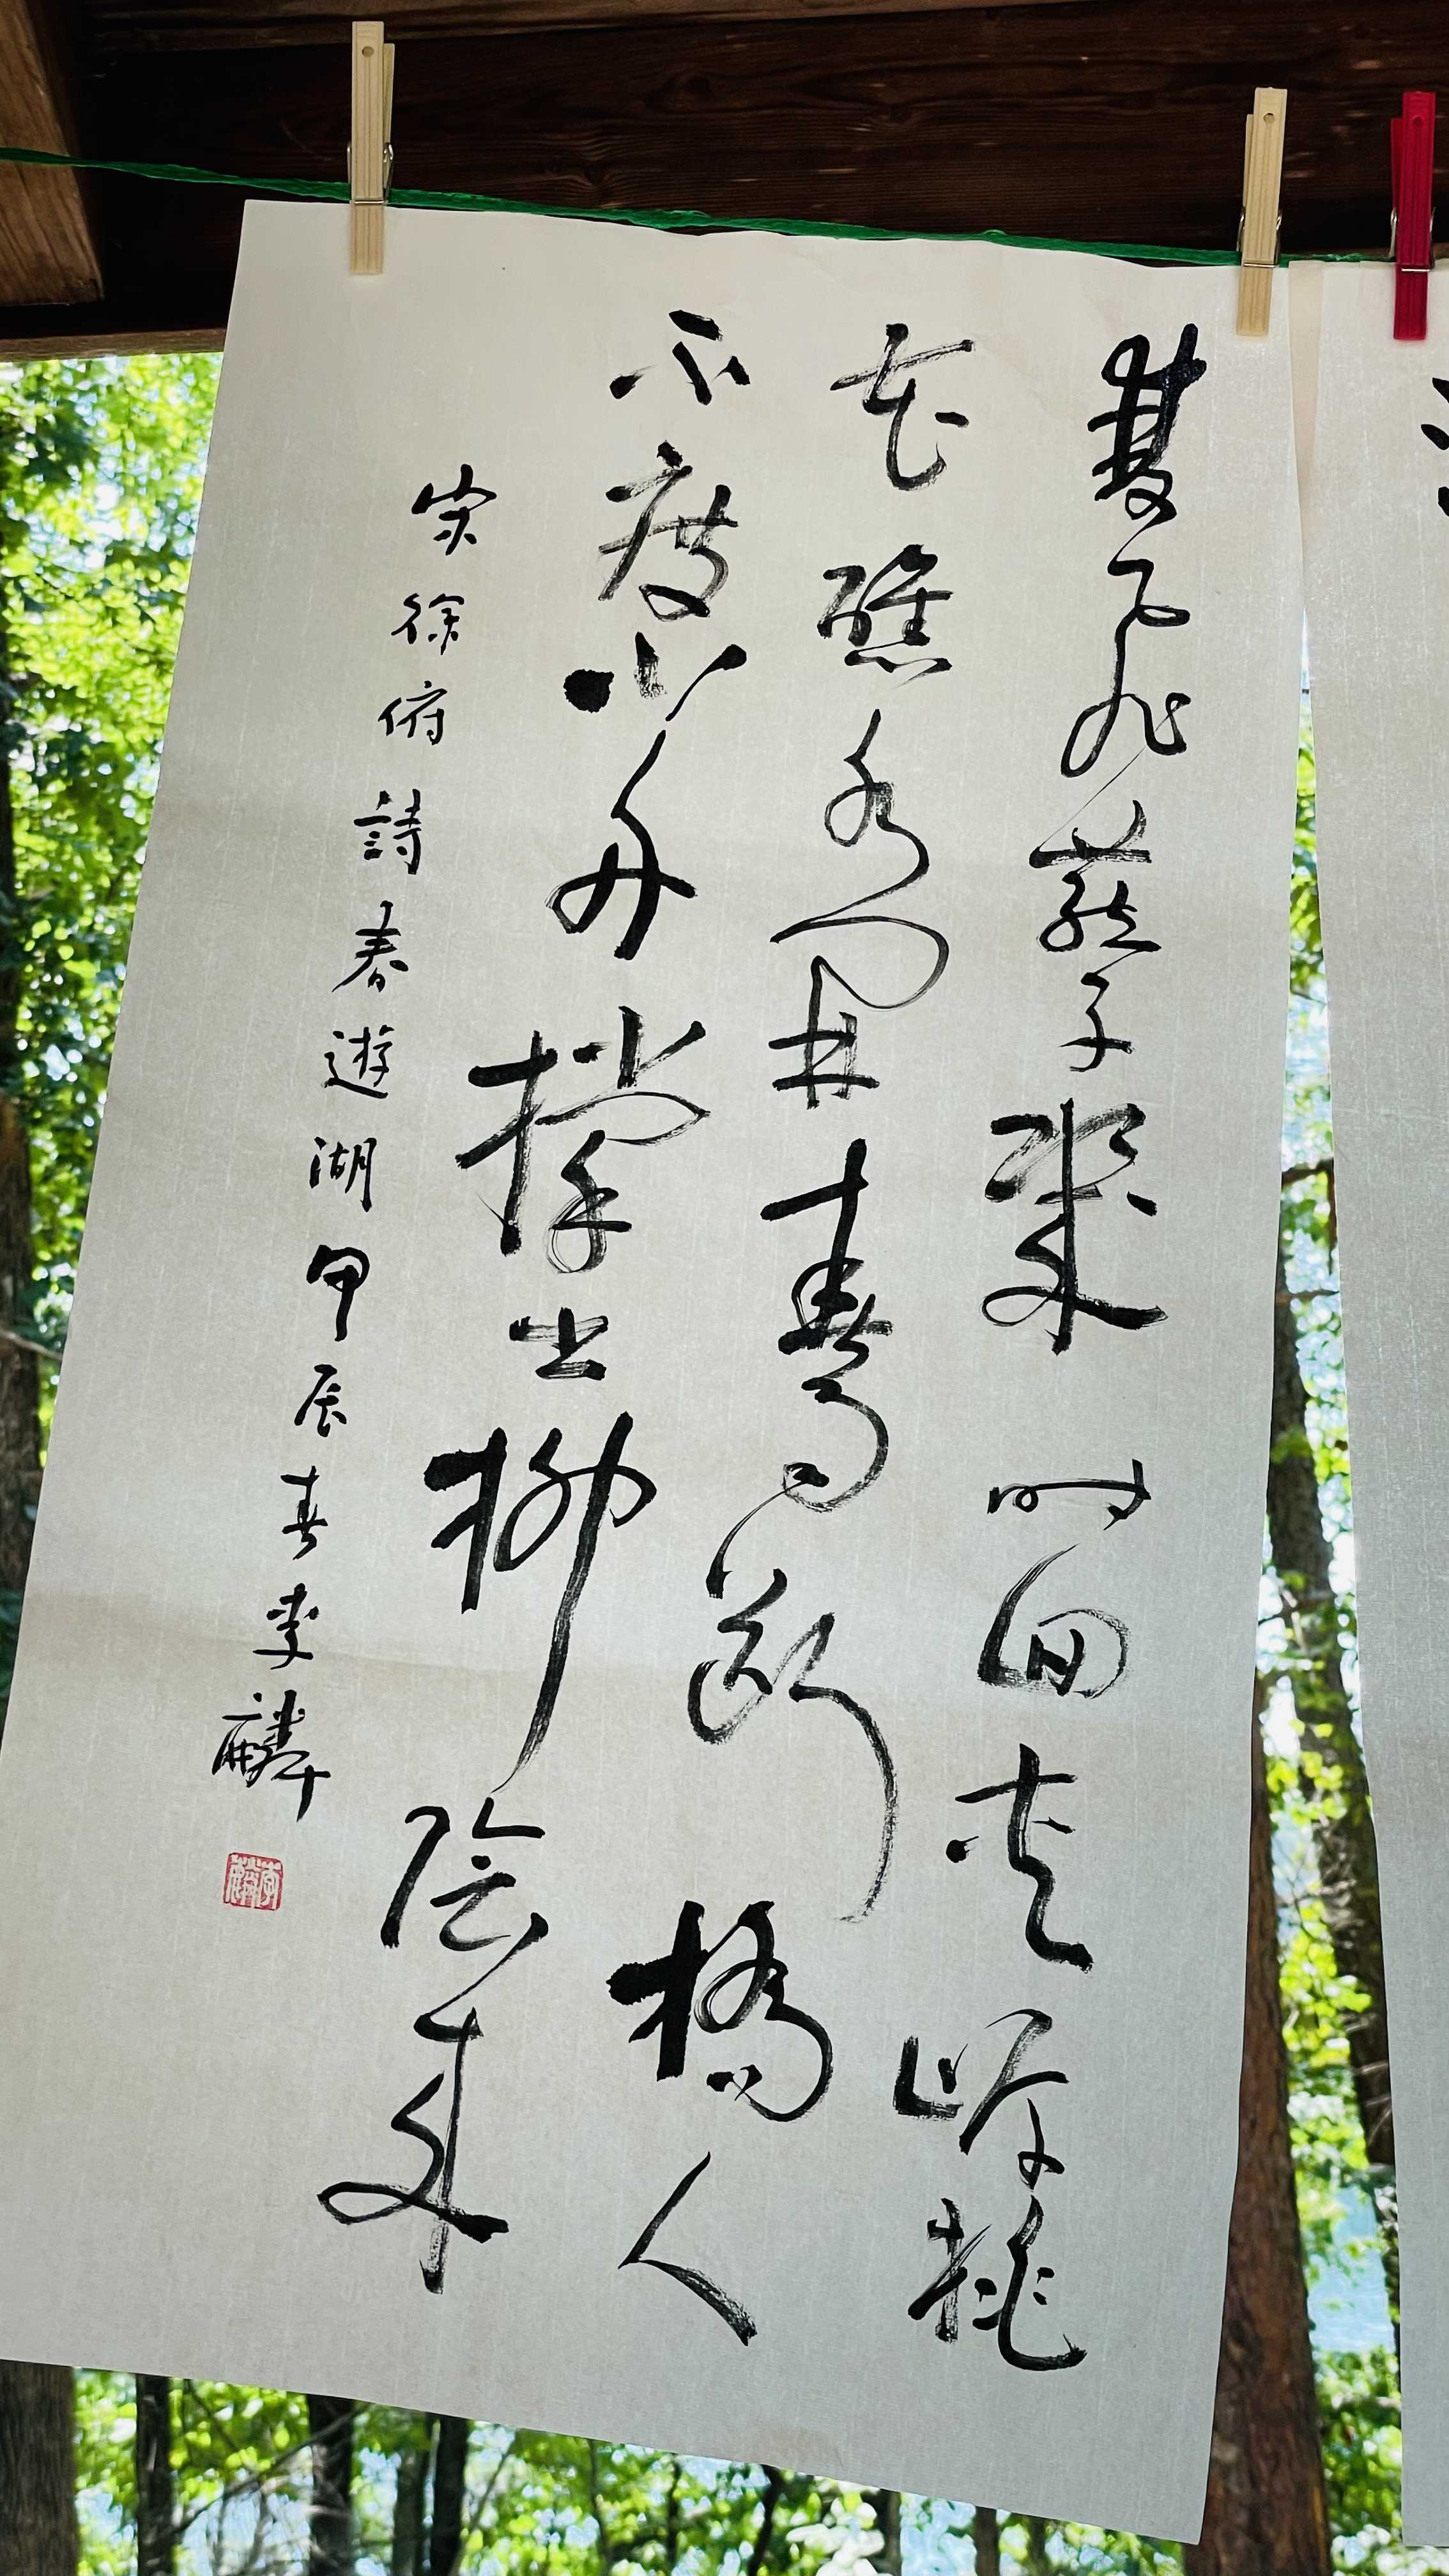 雙飛燕子幾時回夾岸桃
花醮水開春雨斷橋人
不度小舟撐出柳陰來
宋徐俯詩春遊湖甲辰春李麟
李麟